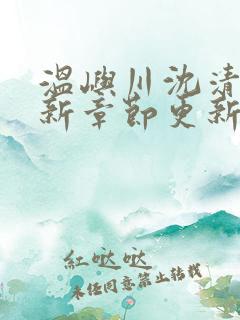 温屿川沈清
新章节更新
红哒哒
未经同意禁止转载